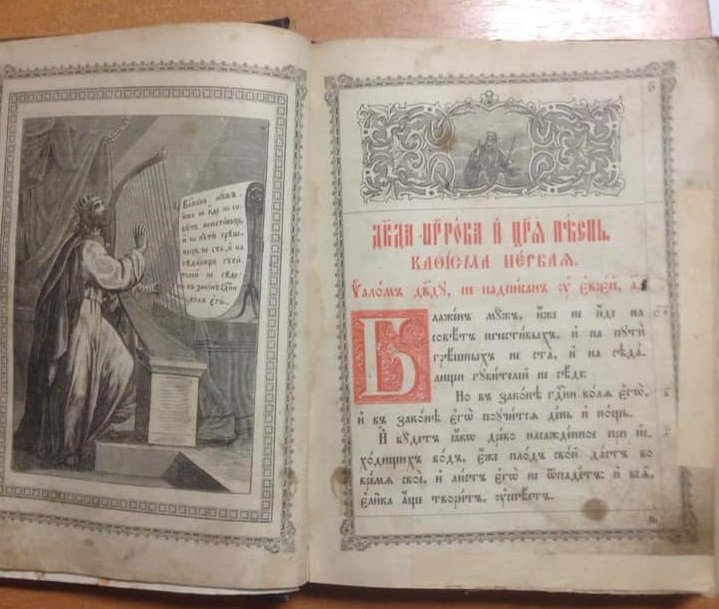 Блаженъ мужъ,
иже не иде на со-
вѣтъ нечестивыхъ,
и на пути грѣш-
ныхъ не ста, и на
сѣдалищи губи-
телей не сѣде:
но въ законѣ Гдни
воля егѡ.
Дв҃да прⷪ҇ро́ка и҆ цр҃ѧ̀ пѣ́снь.
Каѳі́сма пе́рваѧ.
Ѱало́мъ дв҃дꙋ, не надпи́санъ ᲂу҆ є҆врє́й, а҃.
Блаже́нъ мꙋ́жъ, и҆́же не и҆́де на
совѣ́тъ нечести́выхъ, и҆ на пꙋтѝ
грѣ́шныхъ не ста̀, и҆ на сѣда́-
лищи гꙋби́телей не сѣ́де:
Но въ зако́нѣ гдⷭ҇ни во́лѧ є҆гѡ̀,
и҆ въ зако́нѣ є҆гѡ̀ поꙋчи́тсѧ де́нь и҆ но́щь.
И҆ бꙋ́детъ ꙗ҆́кѡ дре́во насажде́нное при и҆с-
хо́дищихъ во́дъ, є҆́же пло́дъ сво́й да́стъ во
вре́мѧ своѐ, и҆ ли́стъ є҆гѡ̀ не ѿпаде́тъ: и҆ всѧ̑,
є҆ли̑ка а҆́ще твори́тъ, ᲂу҆спѣ́етъ.